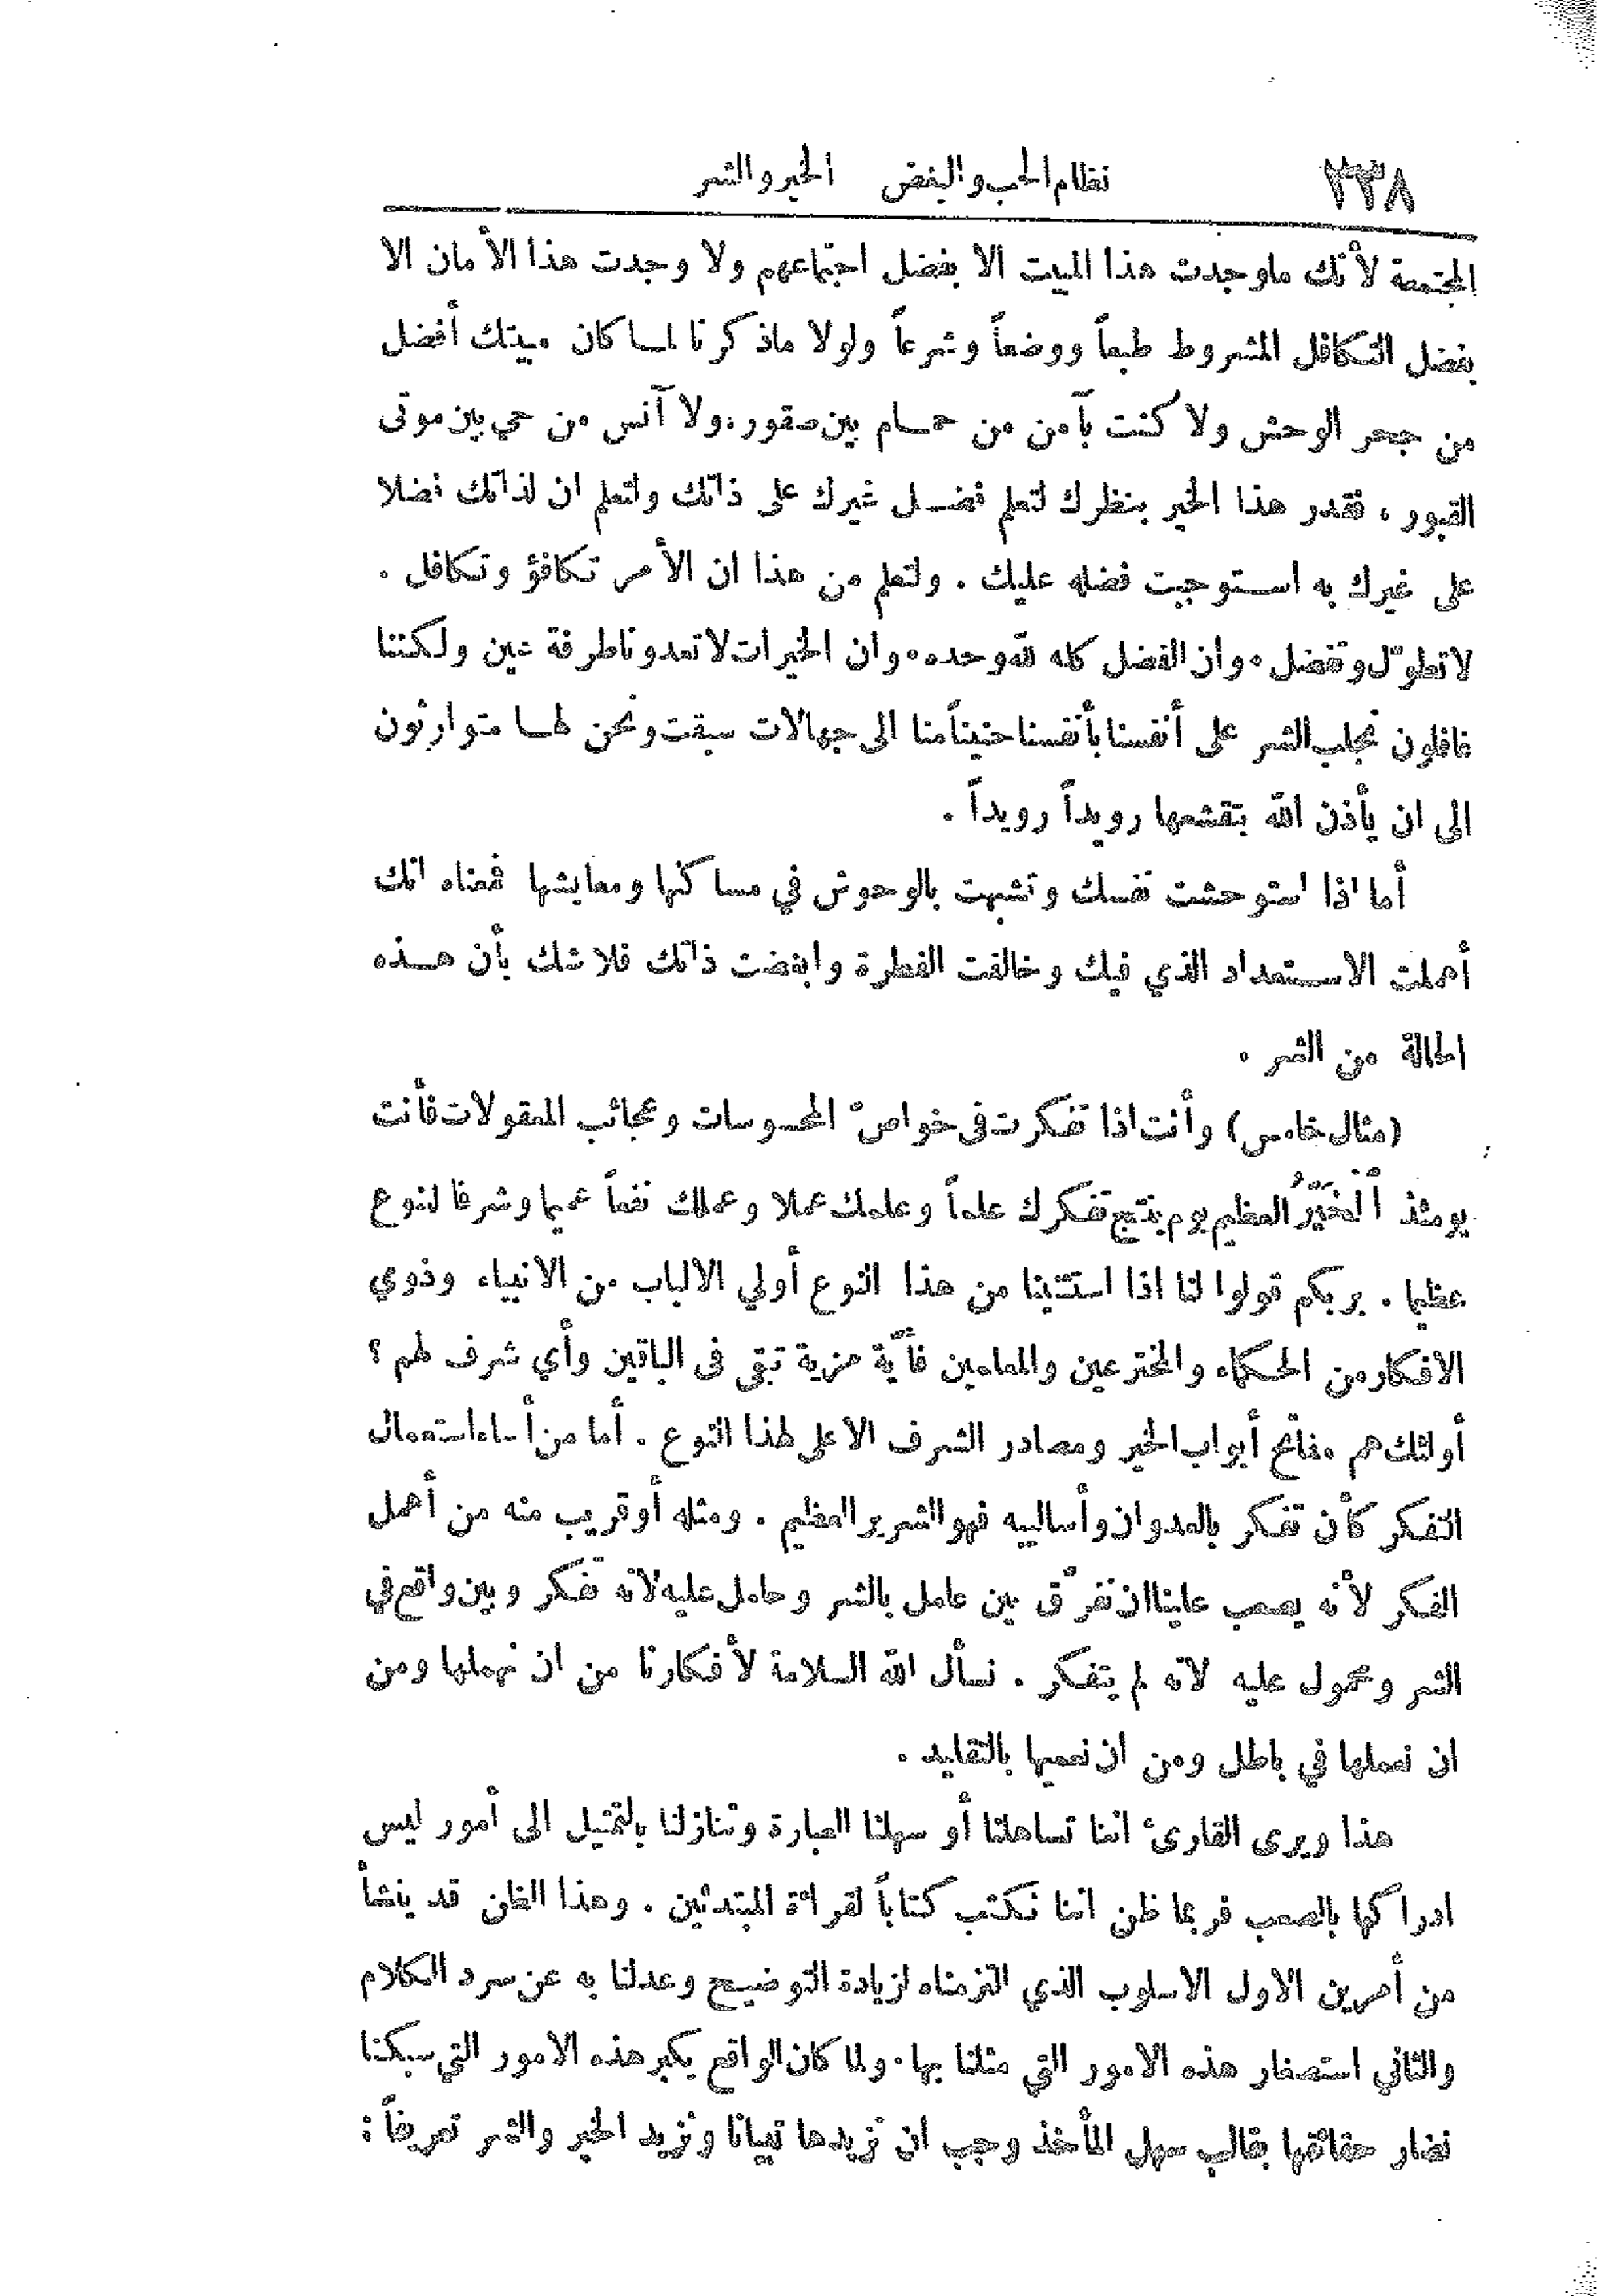 ٣٣٨ نظام الحب والبغض الخير والشر
المجتمعة لأنك ماوجدت هذا البيت الا بفضل اجتماعهم ولا وجدت هذا الأمان الا
بفضل التكافل المشروط طبعاً ووضعاً وشرعاً ولولا ماذكرنا لما كان مبيتك أفضل
من جحر الوحش ولا كنت بآمن من حمام بين صقور، ولا آنس من حي بين موتى
القبور، فقدر هذا الخير بنظرك لتعلم فضل غيرك على ذاتك ولتعلم ان لذاتك فضلا
على غيرك به استوجبت فضله عليك. ولتعلم من هذا ان الأمر تكافؤ وتكافل.
لا تطوّل وتفضل. وان الفضل كله لله وحده. وان الخيرات لا تعدونا طرفة عين ولكننا
غافلون نجلب الشر على أنفسنا بأنفسنا حنيناً منا الى جهالات سبقت ونحن لها متوارثون
الى ان يأذن الله بتقشعها رويداً رويداً.
أما اذا استوحشت نفسك وتشبهت بالوحوش في مساكنها ومعايشها فمعناه انك
أهملت الاستعداد الذي فيك وخالفت الفطرة وابغضت ذاتك فلا شك بأن هذه
الحالة من الشر.
(مثال خامس) وأنت اذا تفكرت فى خواصّ المحسوسات وعجائب المعقولات فأنت
يومئذ اَلْخَيِّرُ العظيم يوم ينتج تفكرك علماً وعلمك عملا وعملك نفعاً عميما وشرفا لنوع
عظيما. بربكم قولوا لنا اذا استثنينا من هذا النوع أولي الالباب من الانبياء وذوي
الافكار من الحكماء والمخترعين والمعلمين فأيّة مزية تبقى فى الباقين وأي شرف لهم؟
أولئك هم مفاتح أبواب الخير ومصادر الشرف الاعلى لهذا النوع. أما من أساء استعمال
التفكر كأن تفكر بالعدوان وأساليبه فهو الشرير العظيم. ومثله أو قريب منه من أهمل
الفكر لأنه يصعب علينا ان نفرّق بين عامل بالشر وحامل عليه لانه تفكر وبين واقع في
الشر ومحمول عليه لانه لم يتفكر. نسأل الله السلامة لأفكارنا من ان نهملها ومن
ان نعملها في باطل ومن ان نعميها بالتقليد.
هذا ويرى القارئ اننا تساهلنا أو سهلنا العبارة وتنازلنا بالتمثيل الى أمور ليس
ادراكها بالصعب فربما ظن اننا نكتب كتاباً لقراءة المبتدئين. وهذا الظن قد ينشأ
من أمرين الاول الاسلوب الذي التزمناه لزيادة التوضيح وعدلنا به عن سرد الكلام
والثاني استصغار هذه الامور التي مثلنا بها. ولما كان الواقع يكبر هذه الامور التي سبكنا
نضار حقائقها بقالب سهل المأخذ وجب ان نزيدها تبيانا ونزيد الخير والشر تعريفاً: